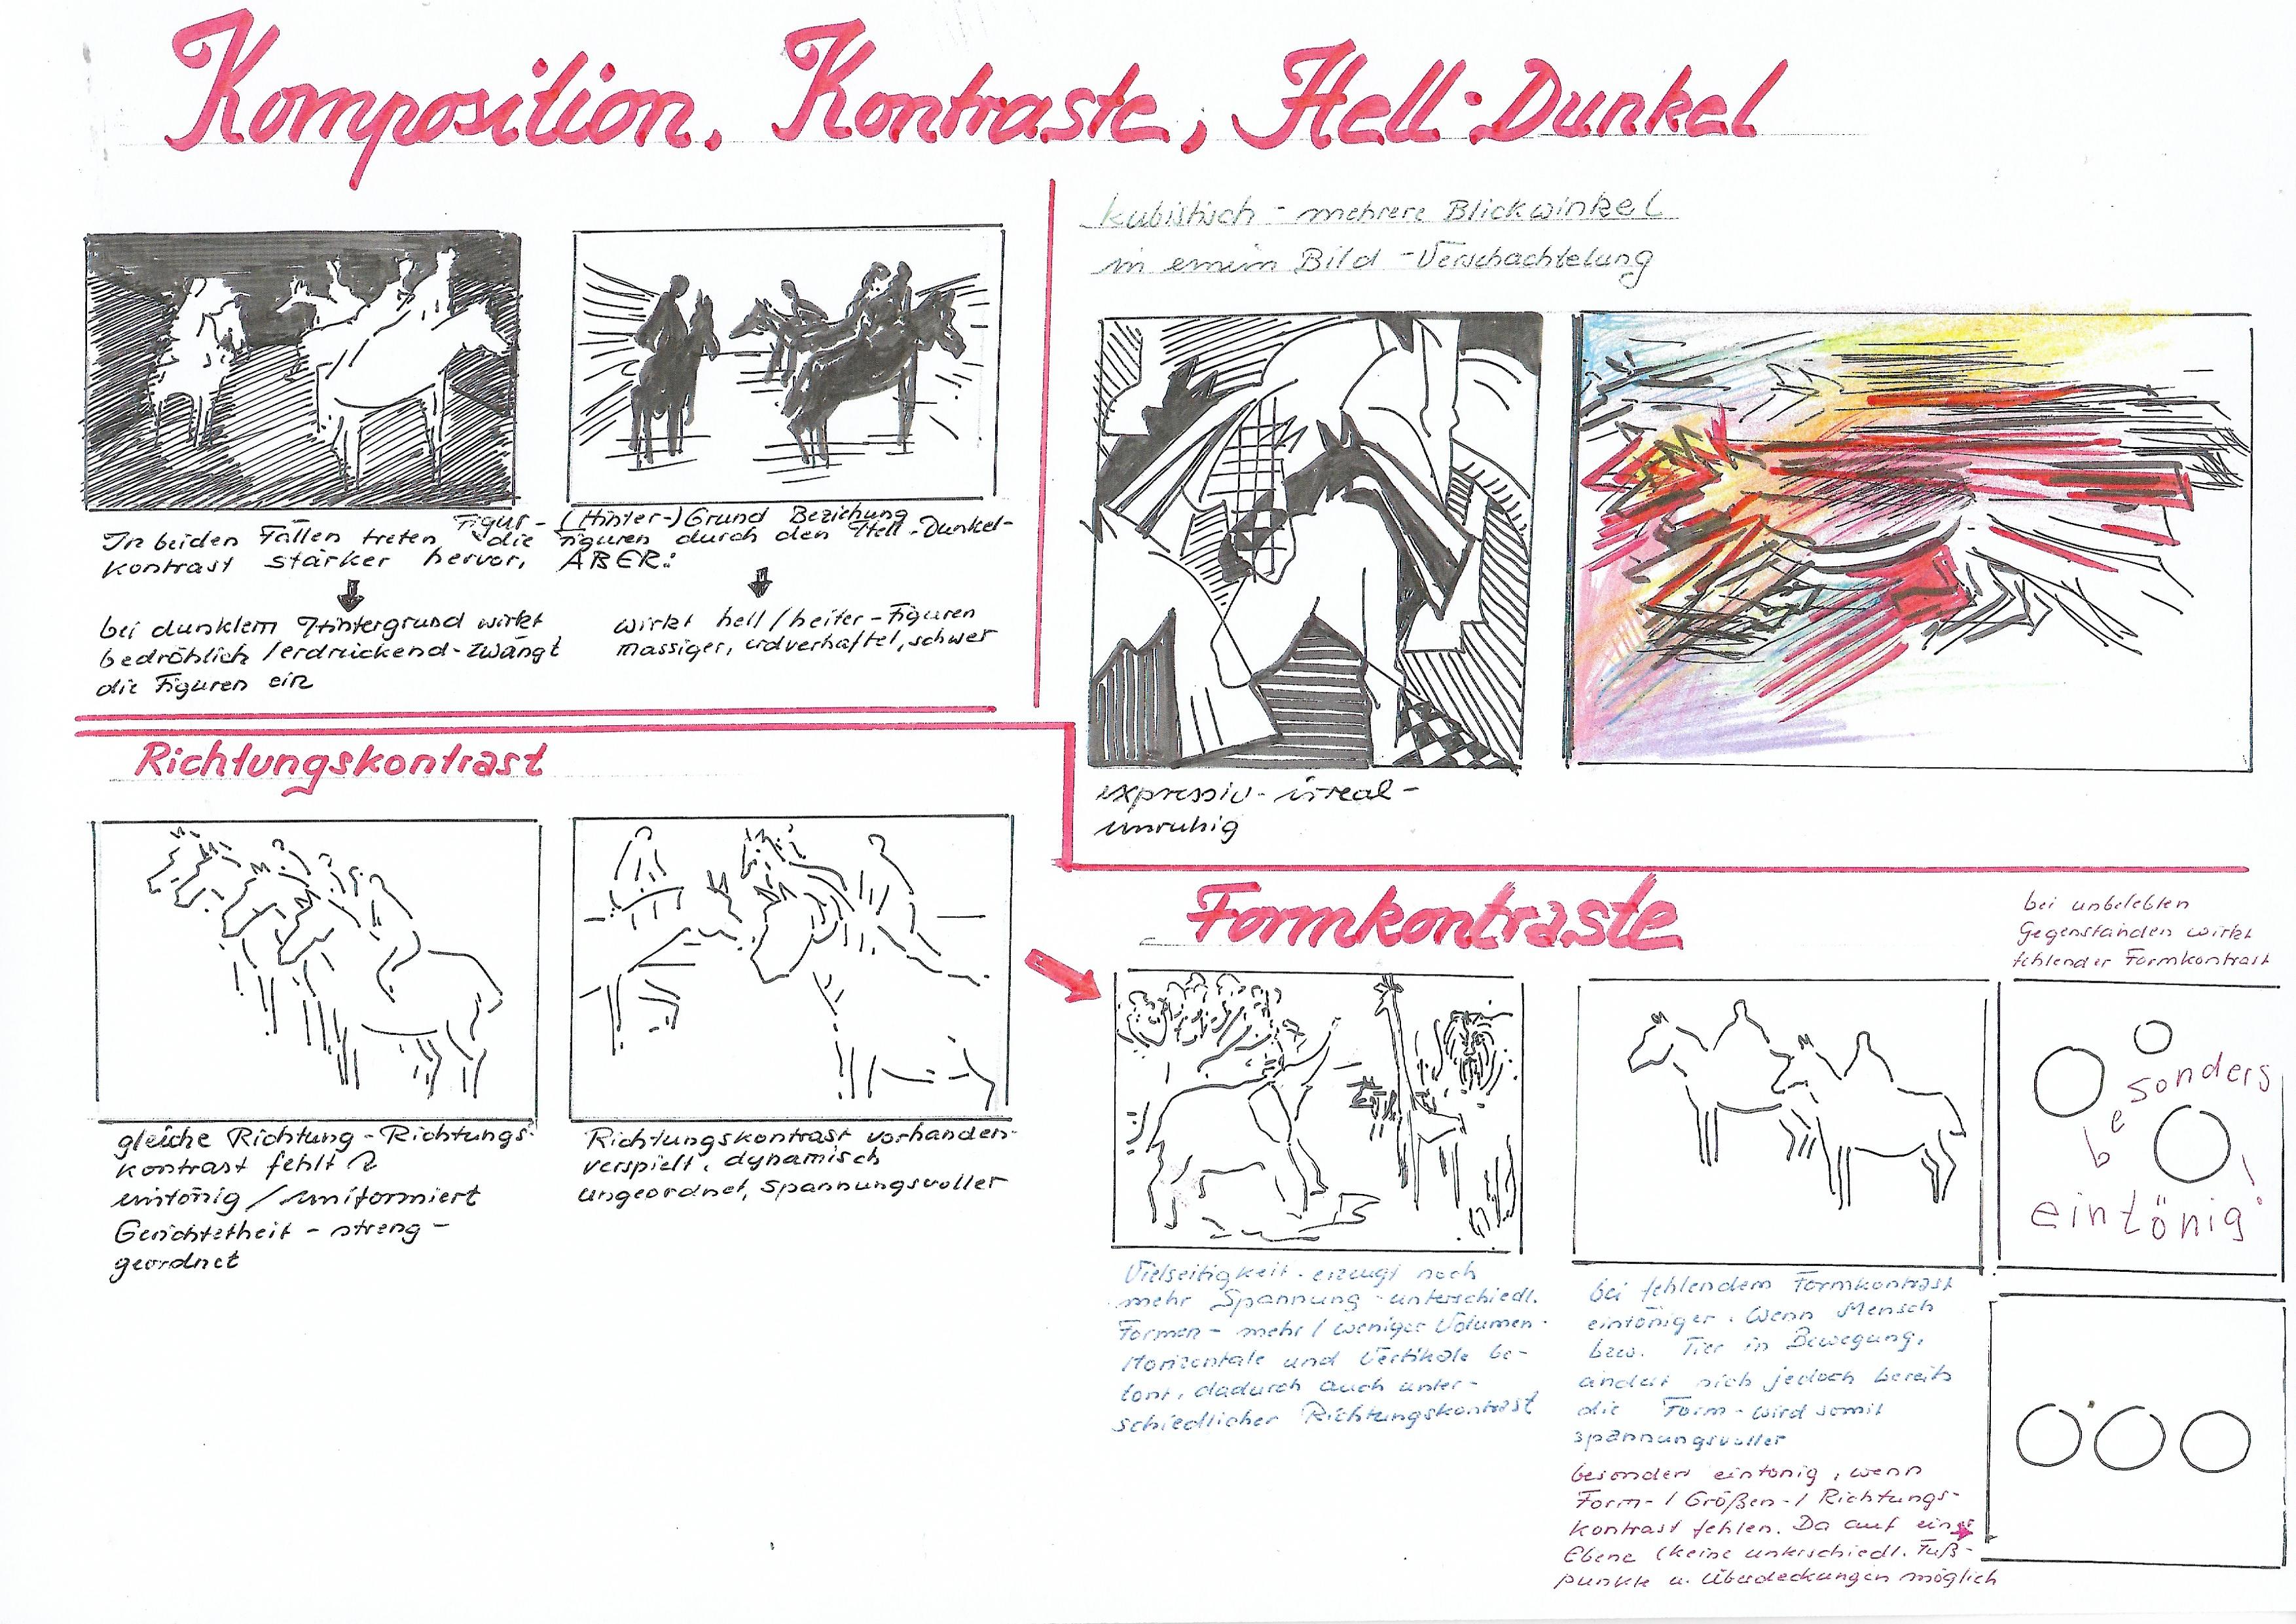 Komposition, Kontraste, Hell-Dunkel
Figur-(Hinter-)Grund Beziehung
In beiden Fällen treten die Figuren durch den Hell-Dunkel-
kontrast stärker hervor, ABER:
bei dunklem Hintergrund wirkt
bedrohlich / erdrückend - zwängt
die Figuren ein
wirkt hell / heiter - Figuren
massiger, erdverhaftet, schwer
kubistisch - mehrere Blickwinkel
in einem Bild - Verschachtelung
expressiv - irreal -
unruhig
Richtungskontrast
gleiche Richtung - Richtungs-
kontrast fehlt
eintönig / uniformiert
Gerichtetheit - streng -
geordnet
Richtungskontrast vorhanden -
verspielt, dynamisch
ungeordnet, spannungsvoller
Formkontraste
Vielseitigkeit - erzeugt noch
mehr Spannung - unterschiedl.
Formen - mehr / weniger Volumen -
Horizontale und Vertikale be-
tont, dadurch auch unter-
schiedlicher Richtungskontrast
bei fehlendem Formkontrast
eintöniger. Wenn Mensch
bzw. Tier in Bewegung,
ändert sich jedoch bereits
die Form - wird somit
spannungsvoller
besonders eintönig, wenn
Form- / Größen- / Richtungs-
kontrast fehlen. Da auf einer
Ebene (keine unterschiedl. Fuß-
punkte u. Überdeckungen möglich
bei unbelebten
Gegenständen wirkt
fehlender Formkontrast
besonders
eintönig!